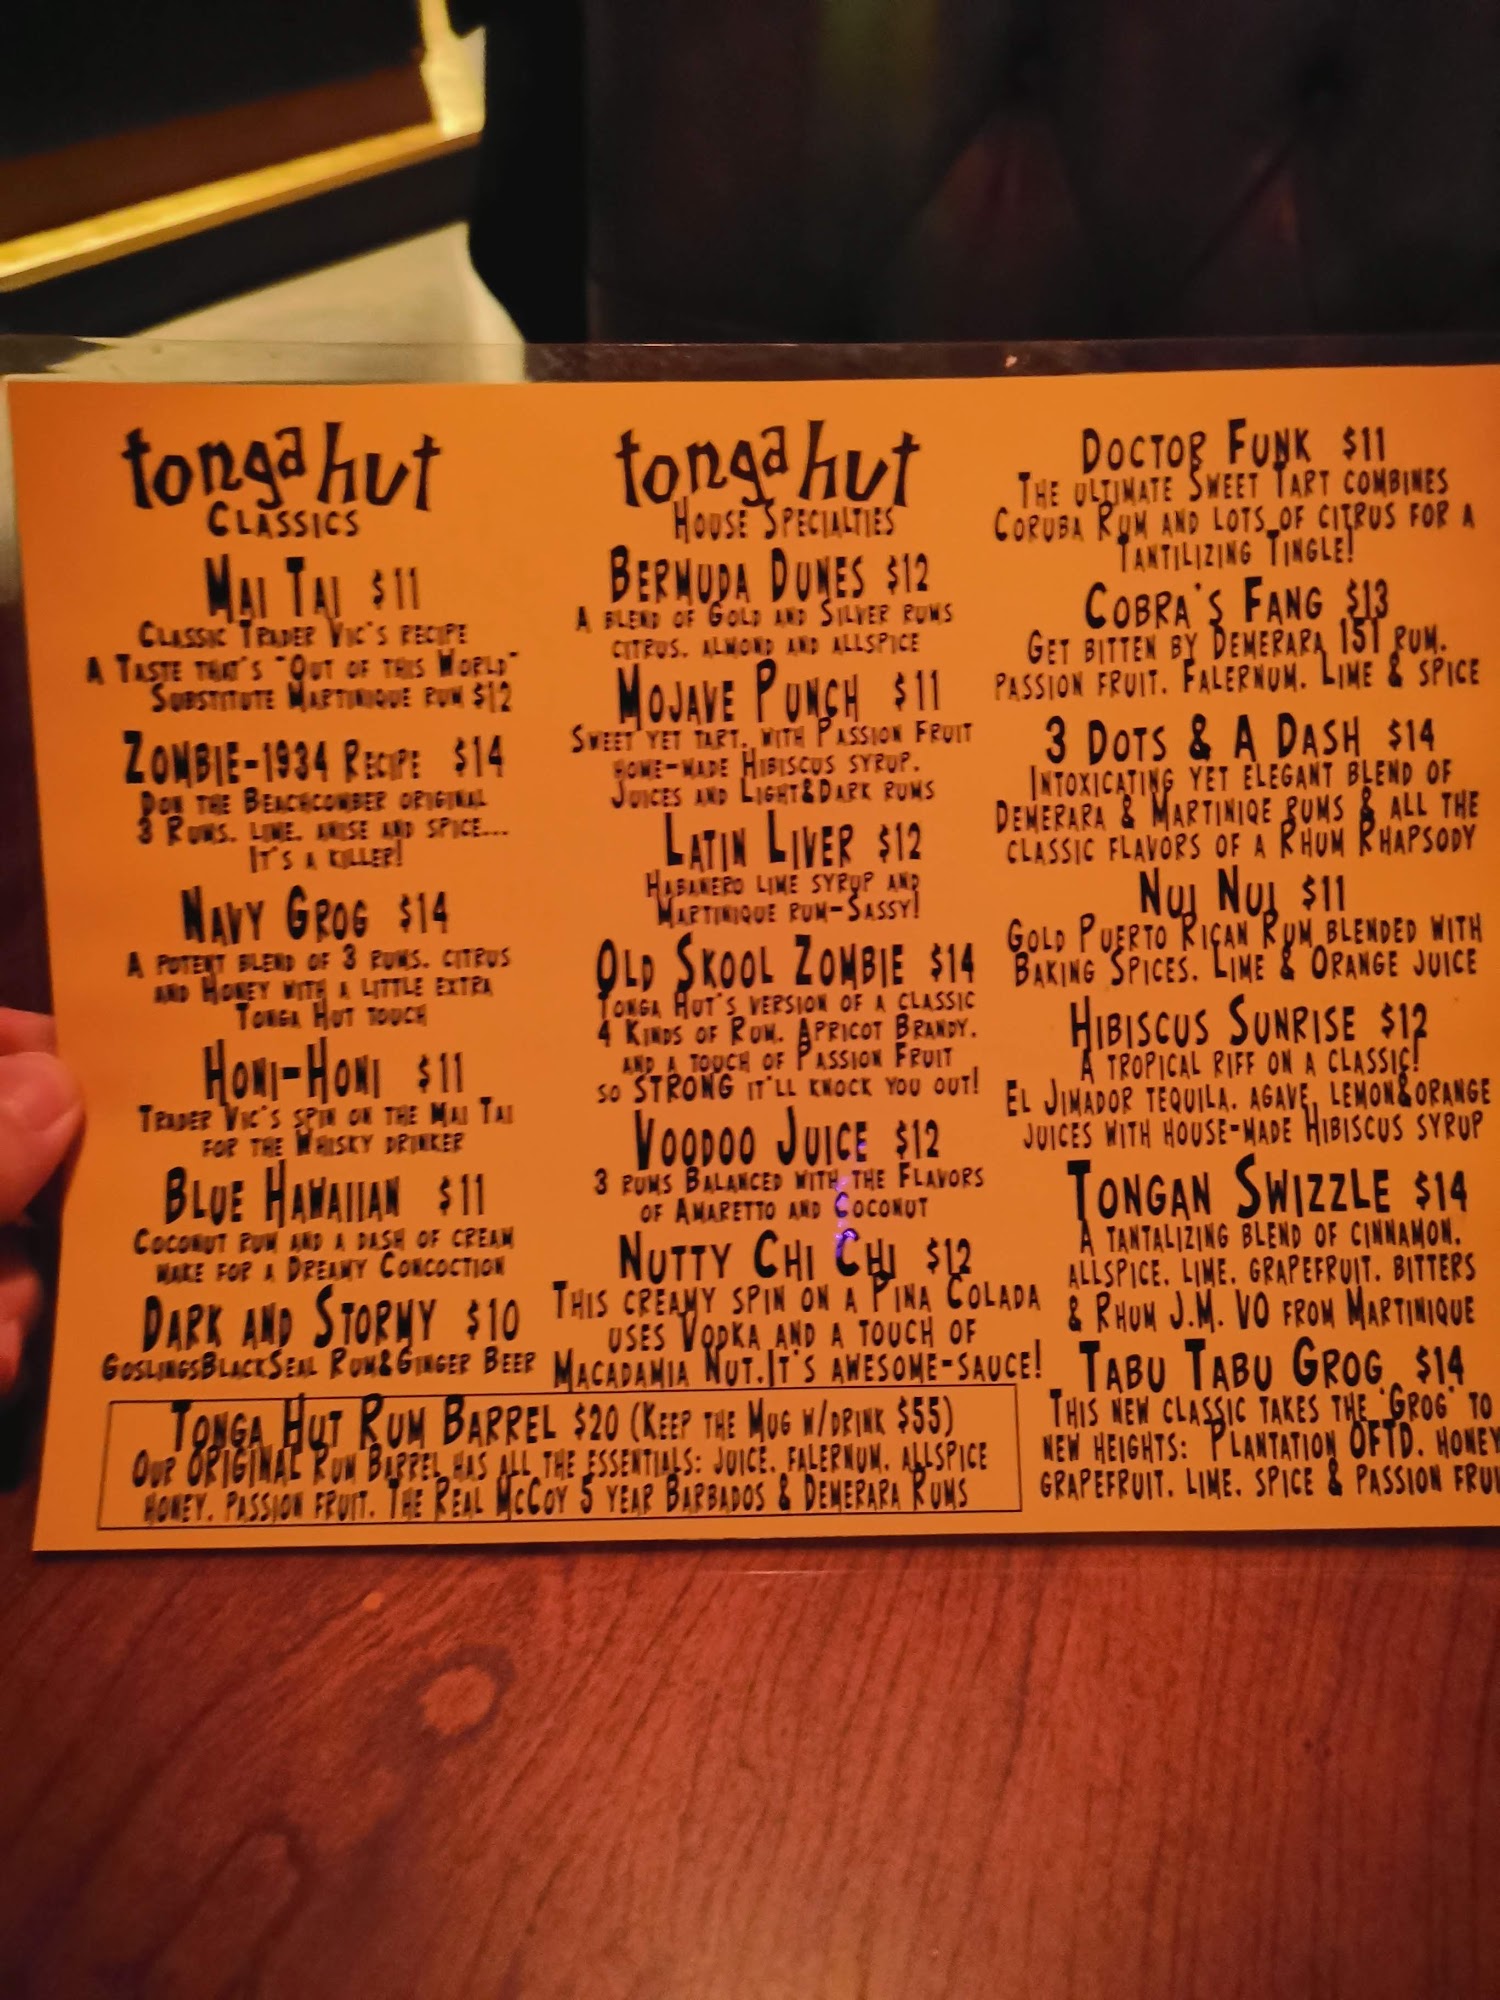 tonga hut
Classics
Mai Tai $11
Classic Trader Vic's recipe
A Taste that's "Out of this World"
Substitute Martinique rum $12
Zombie-1934 Recipe $14
Don the Beachcomber original
3 Rums, lime, anise and spice...
It's a killer!
Navy Grog $14
A potent blend of 3 rums, citrus
and Honey with a little extra
Tonga Hut touch
Honi-Honi $11
Trader Vic's spin on the Mai Tai
for the Whisky drinker
Blue Hawaiian $11
Coconut rum and a dash of cream
make for a Dreamy Concoction
Dark and Stormy $10
GoslingsBlackSeal Rum&Ginger Beer
tonga hut
House Specialties
Bermuda Dunes $12
A blend of Gold and Silver rums
citrus, almond and allspice
Mojave Punch $11
Sweet yet tart, with Passion Fruit
home-made Hibiscus syrup,
Juices and Light&Dark rums
Latin Liver $12
Habanero lime syrup and
Martinique rum-Sassy!
Old Skool Zombie $14
Tonga Hut's version of a classic
4 Kinds of Rum, Apricot Brandy,
and a touch of Passion Fruit
so STRONG it'll knock you out!
Voodoo Juice $12
3 rums Balanced with the Flavors
of Amaretto and Coconut
Nutty Chi Chi $12
This creamy spin on a Pina Colada
uses Vodka and a touch of
Macadamia Nut.It's awesome-sauce!
Tonga Hut Rum Barrel $20 (Keep the Mug w/drink $55)
Our ORIGINAL Rum Barrel has all the essentials: juice, falernum, allspice
honey, passion fruit, The Real McCoy 5 year Barbados & Demerara Rums
Doctor Funk $11
The ultimate Sweet Tart combines
Coruba Rum and lots of citrus for a
Tantilizing Tingle!
Cobra's Fang $13
Get bitten by Demerara 151 rum,
passion fruit, Falernum, Lime & spice
3 Dots & A Dash $14
Intoxicating yet elegant blend of
Demerara & Martiniqe rums & all the
classic flavors of a Rhum Rhapsody
Nui Nui $11
Gold Puerto Rican Rum blended with
Baking Spices, Lime & Orange juice
Hibiscus Sunrise $12
A tropical riff on a classic!
El Jimador tequila, agave, lemon&orange
juices with house-made Hibiscus syrup
Tongan Swizzle $14
A tantalizing blend of cinnamon,
allspice, lime, grapefruit, bitters
& Rhum J.M. VO from Martinique
Tabu Tabu Grog $14
This new classic takes the 'Grog' to
new heights: Plantation OFTD, honey
grapefruit, lime, spice & passion frui